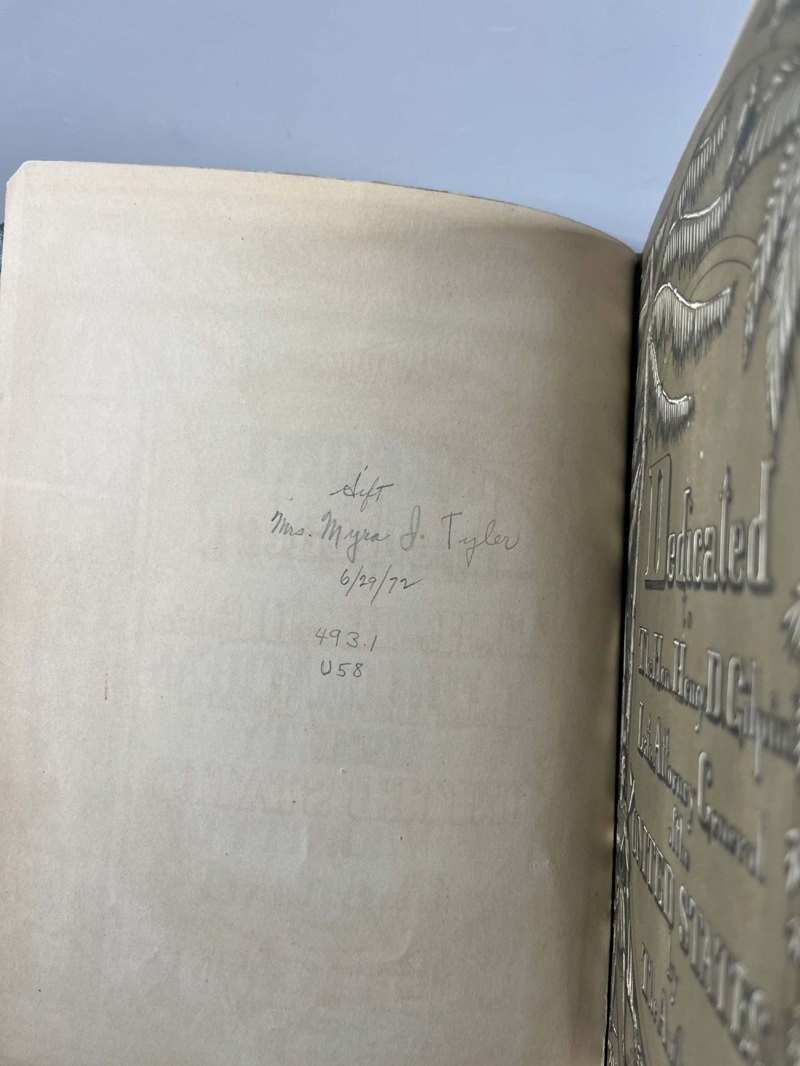 Gift
Mrs. Myra J. Tyler
6/29/72
493.1
U58
Dedicated
to
The Hon. Henry D. Gilpin
Late Attorney General
of the
UNITED STATES
by
The A